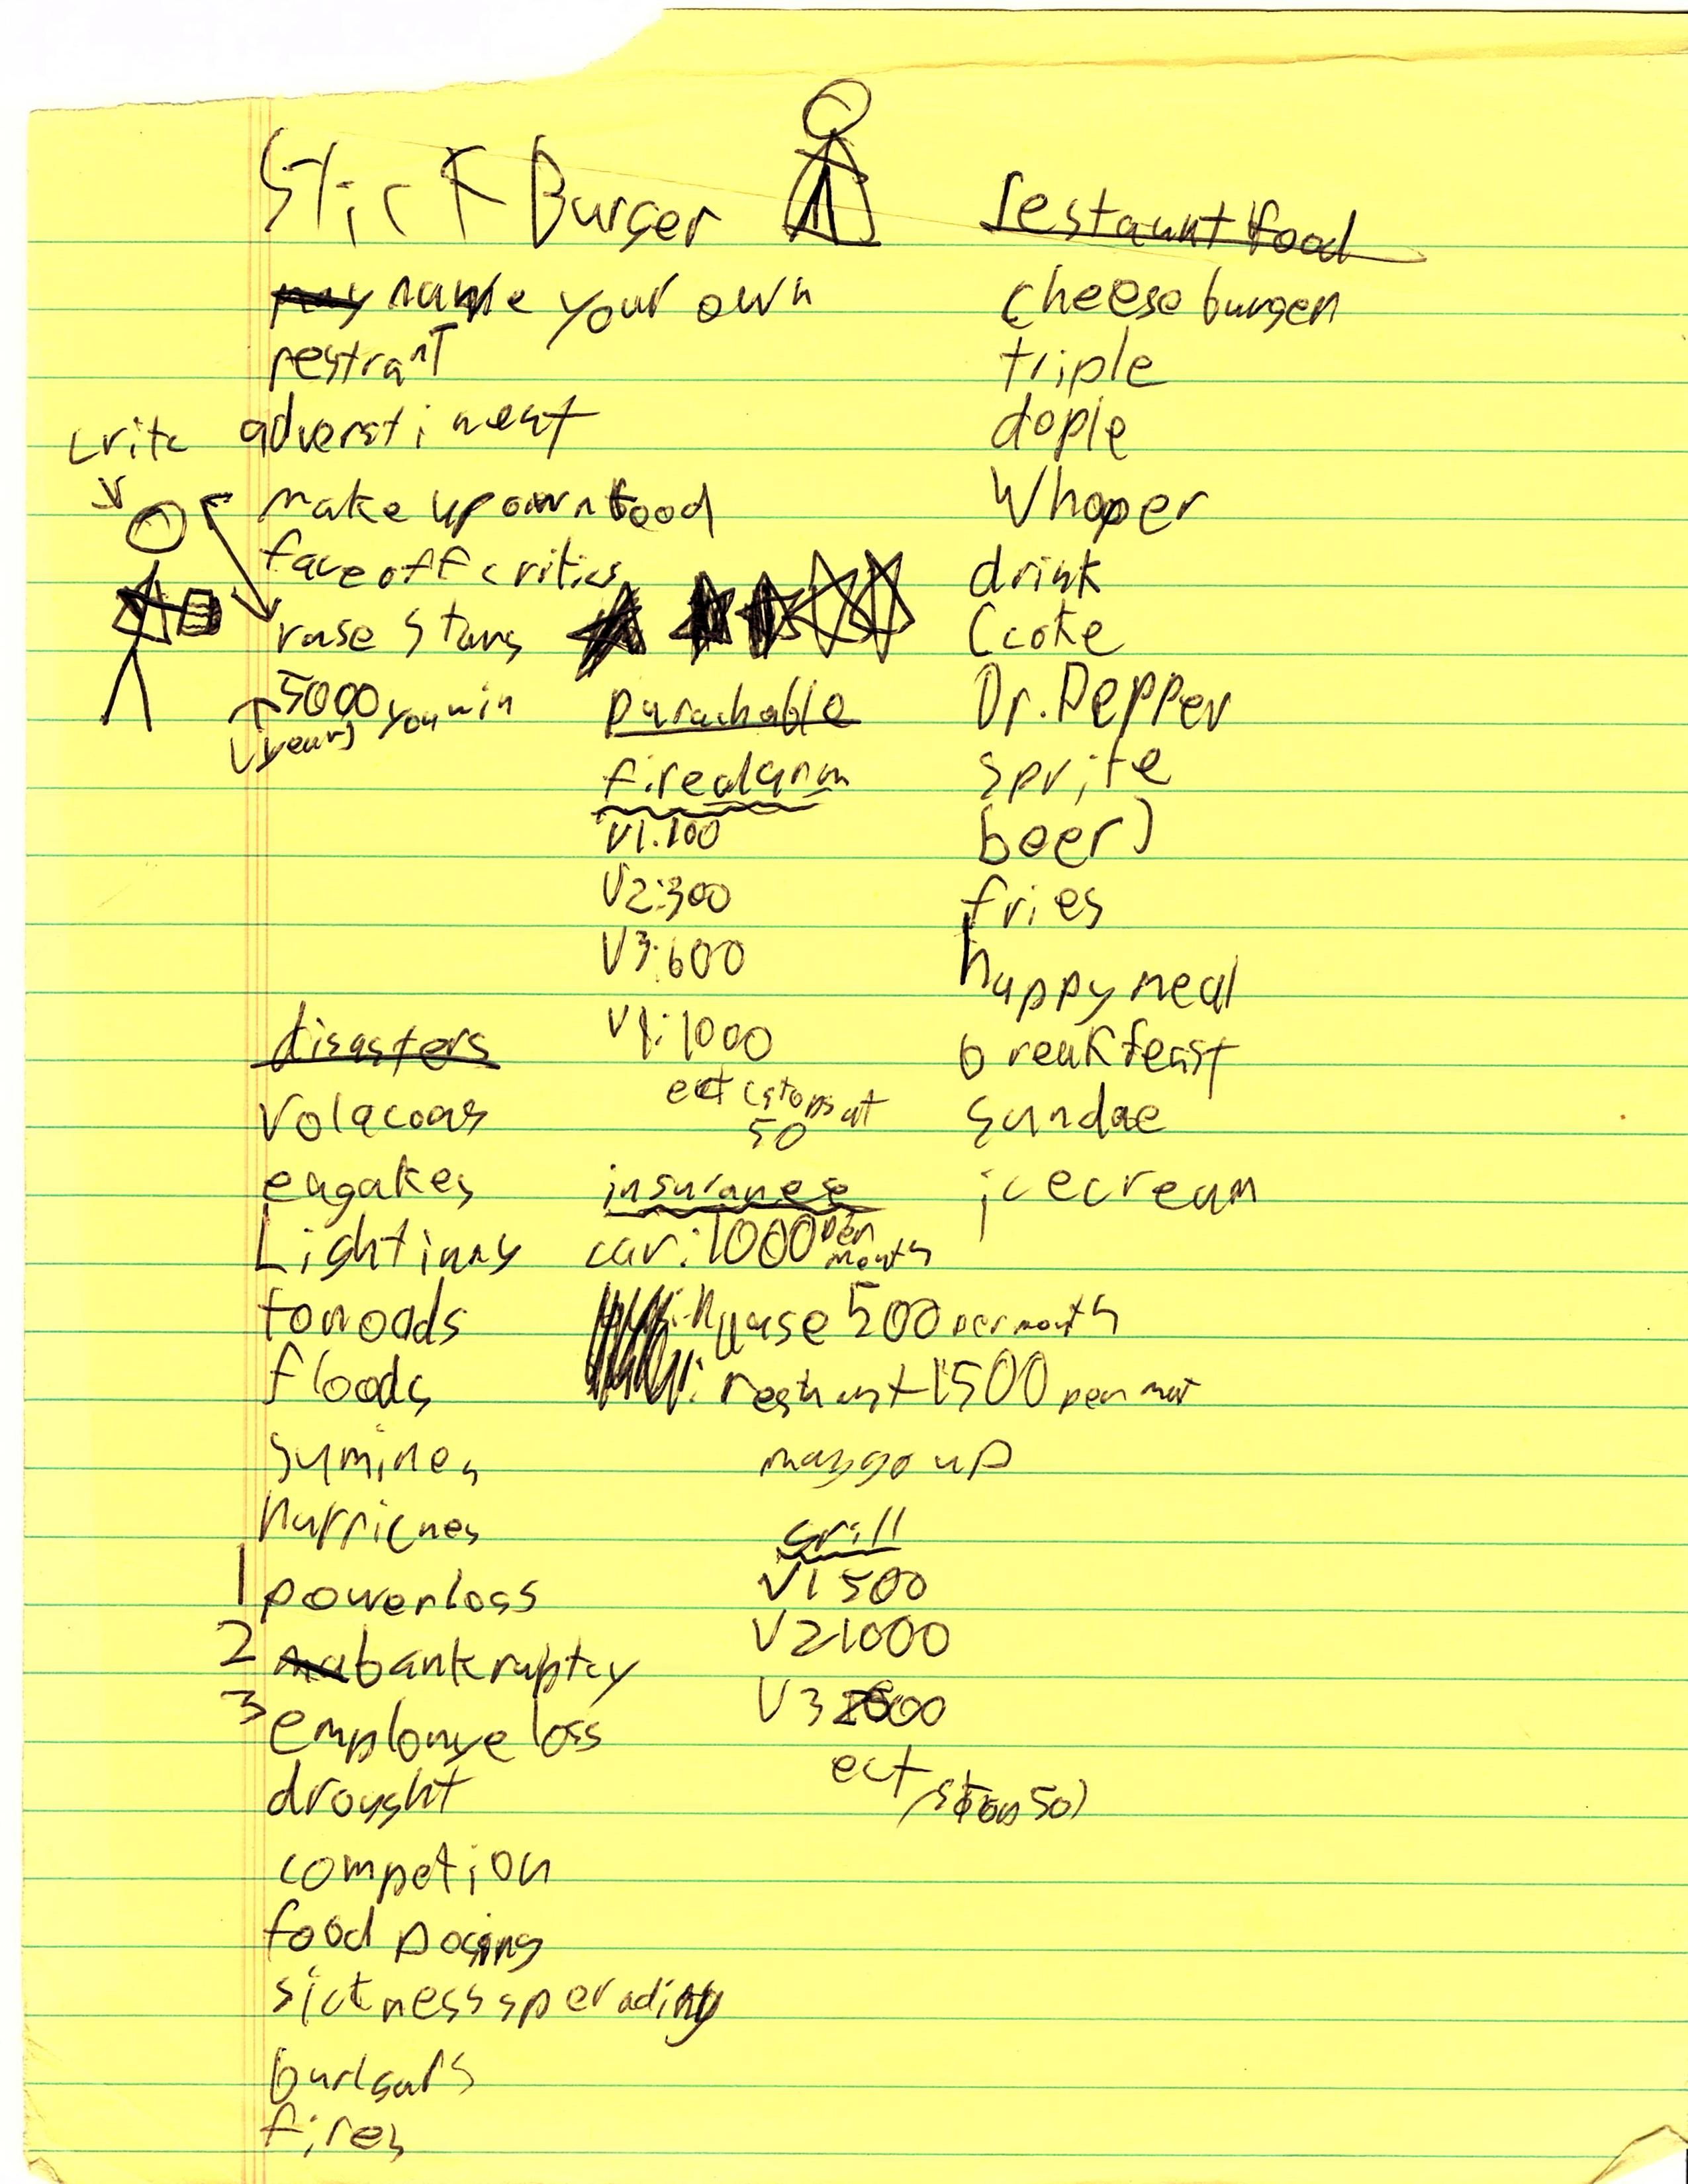 Stick Burger
name your own
restrant
adverstiment
critc
make up own food
face off critics
rase stars
5000 you win
(years)
disasters
Volacoas
eagakes
Lightinny
tonoads
floods
sumines
hurricnes
1 powerloss
2 bankruptcy
3 employye loss
drought
competion
food posing
sickness sperading
burlgars
fires
purachable
firealarm
V1:100
V2:300
V3:600
V4:1000
ect (stops at
50
insuranee
car:1000 per
month
house 500 per month
1500 per
may go up
grill
V1 500
V2 1000
V3
ect
(stops 50)
restaunt food
cheese burger
triple
dople
Whopper
drink
(coke
Dr.Pepper
sprite
beer)
fries
happy meal
breakfeast
sundae
icecream